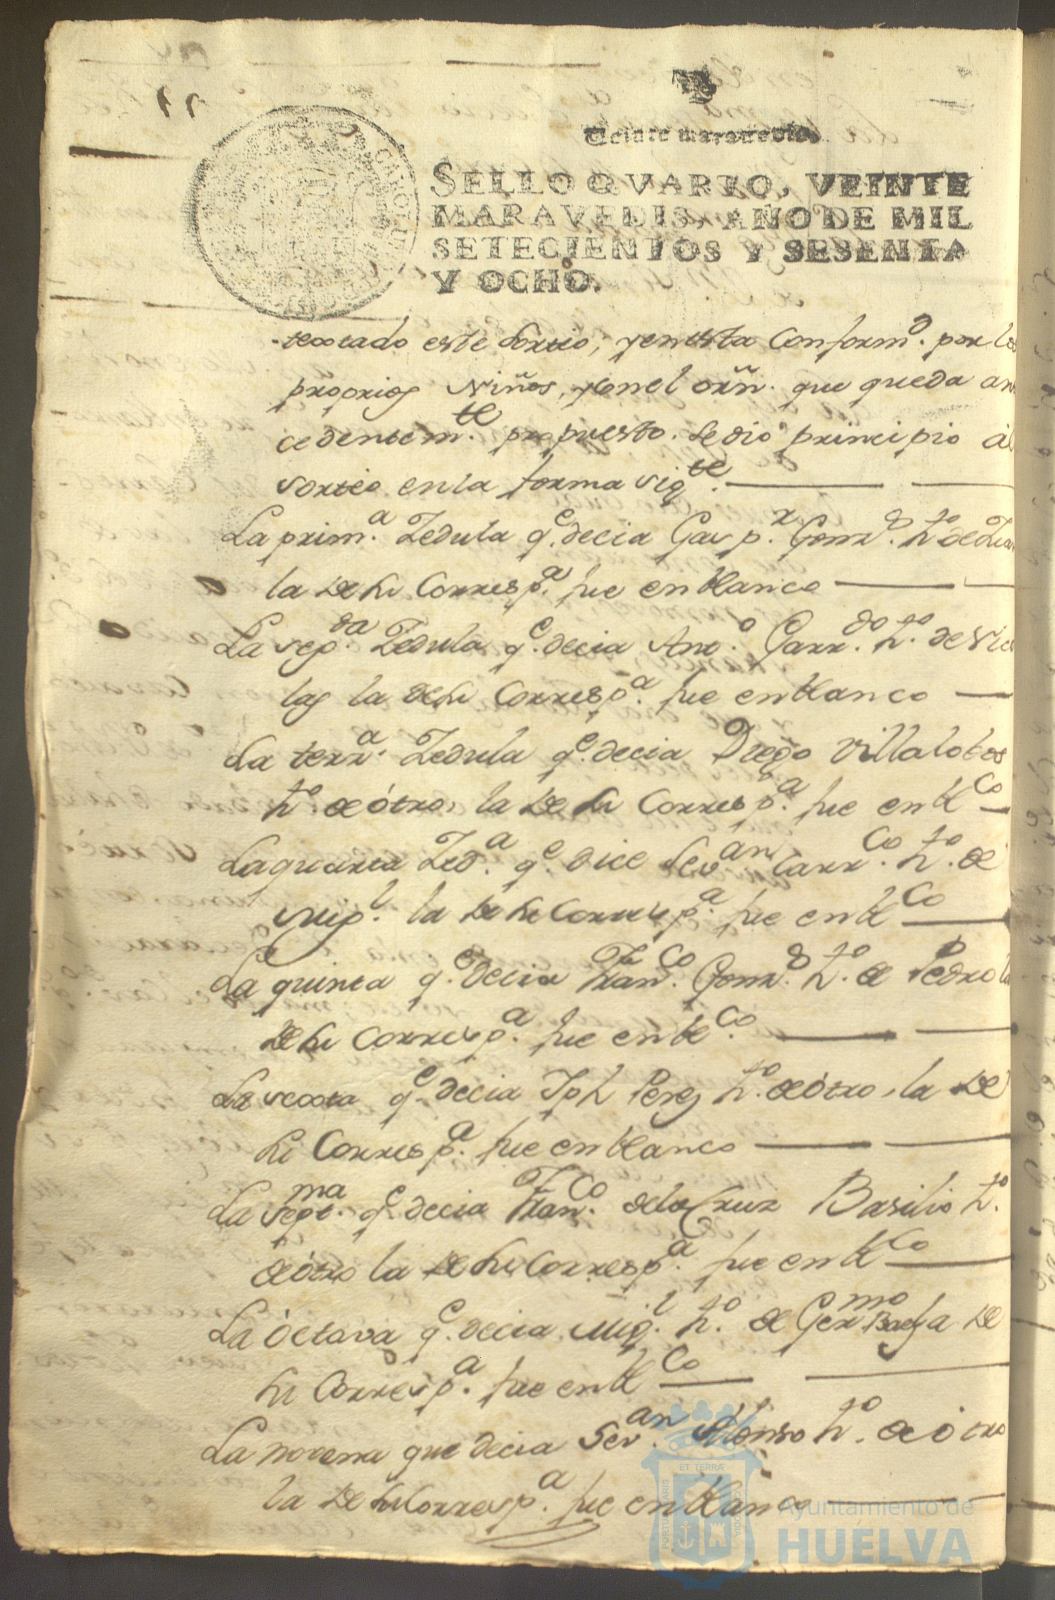 Veinte maravedis.
SELLO QVARTO, VEINTE
MARAVEDIS, AÑO DE MIL
SETECIENTOS Y SESENTA
Y OCHO.
este Sorteo; y en esta Conform.d por los
proprios Niños, y en el orñ. que queda an
cedentem.te propuesto. Se dio principio al
sorteo en la forma sig.te
La prim.a Zedula q.e decia Gasp.r Gonz.s h.o de
la de su Corresp.a fue en blanco
La seg.da Zedula q.e decia Ant.o Garr.do h.o de Nico
las la de su Corresp.a fue en blanco
La terz.a Zedula q.e decia Diego Villalobos
h.o de otro, la de su Corresp.a fue en bl.co
La quarta Zed.a q.e dice Sev.an Carr.co h.o de
Mig.l la de su Corresp.a fue en bl.co
La quinta q.e Decia Fran.co Gonz.s h.o de Pedro la
de su Corresp.a fue en bl.co
La sexta q.e decia Jph Perez h.o de otro, la de
su Corresp.a fue en blanco
La sept.ma q.e decia Fran.co de la Cruz Basilio h.o
de otro la de su Corresp.a fue en bl.co
La Octava q.e decia Mig.l h.o de Ger.mo Baeza de
su Corresp.a fue en bl.co
La novena que decia Sev.an Alonso h.o de otro
la de su Corresp.a fue en blanco
Ayuntamiento de
HUELVA